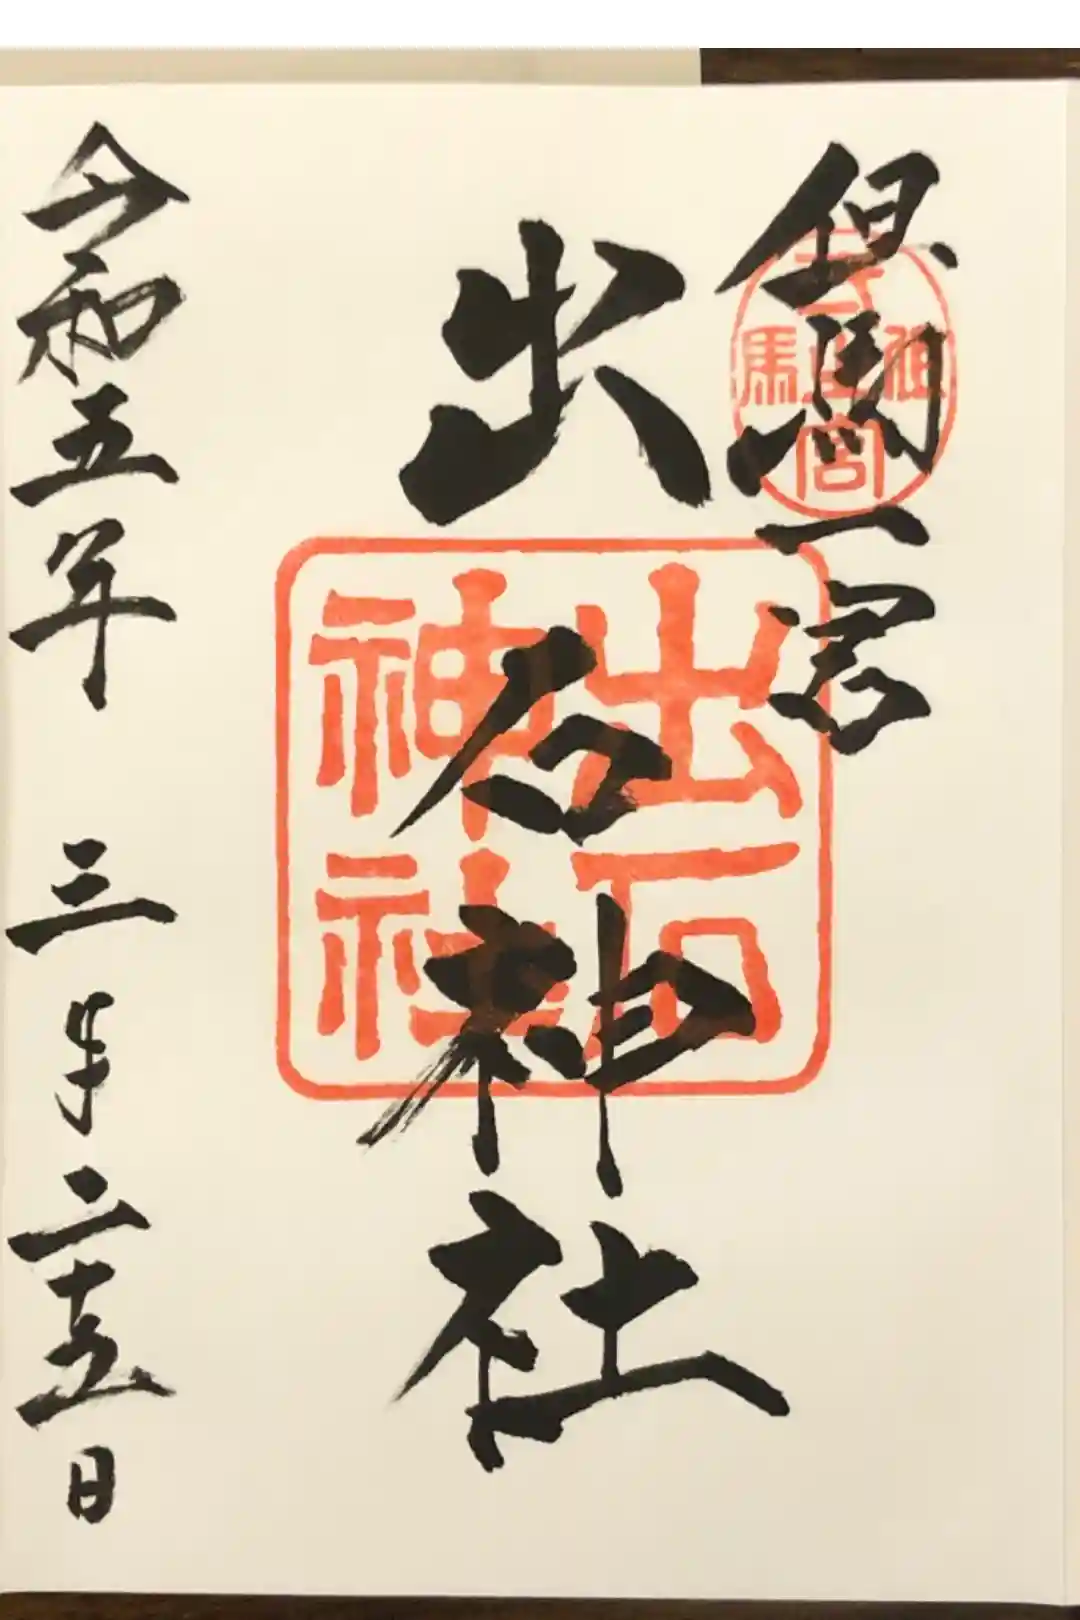 但馬一宮
出石神社
出石神社
令和五年 三月二十五日